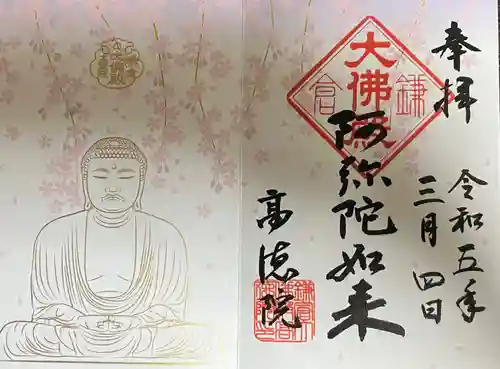 奉拝
令和五年
三月四日
大佛殿
鎌
倉
阿弥陀如来
高徳院